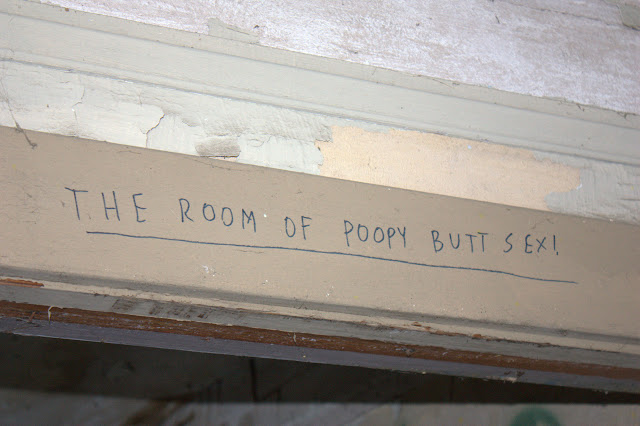 THE ROOM OF POOPY BUTT SEX!